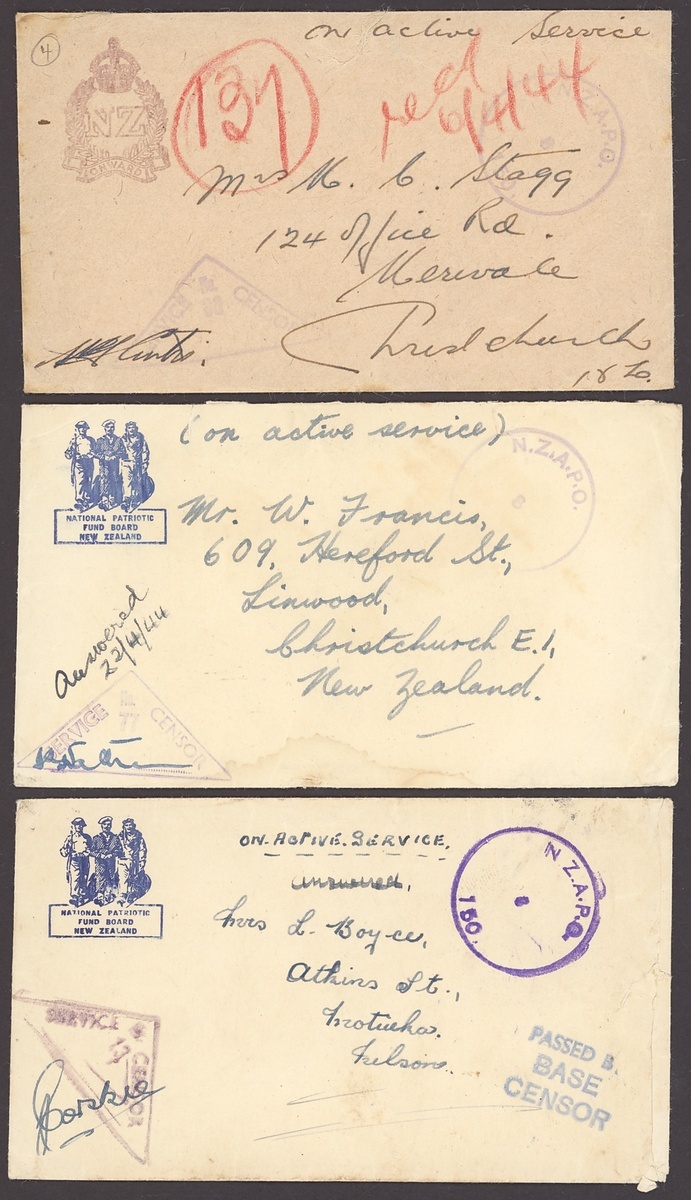 4
on active Service
NZ
ONWARD
137
recd
6/4/44
N.Z.A.P.O.
Mrs M. C. Stagg
124 Office Rd.
Merivale
Christchurch
N.Z.
CENSOR
(on active service)
N.Z.A.P.O.
NATIONAL PATRIOTIC
FUND BOARD
NEW ZEALAND
Mr. W. Francis,
609, Hereford St.,
Linwood,
Christchurch E.1,
New Zealand.
Answered
22/4/44
SERVICE
77
CENSOR
ON ACTIVE SERVICE,
answered,
N.Z.A.P.O.
150.
NATIONAL PATRIOTIC
FUND BOARD
NEW ZEALAND
Mrs L. Boyce,
Atkins St.,
Motueka.
Nelson.
SERVICE
CENSOR
PASSED B.
BASE
CENSOR